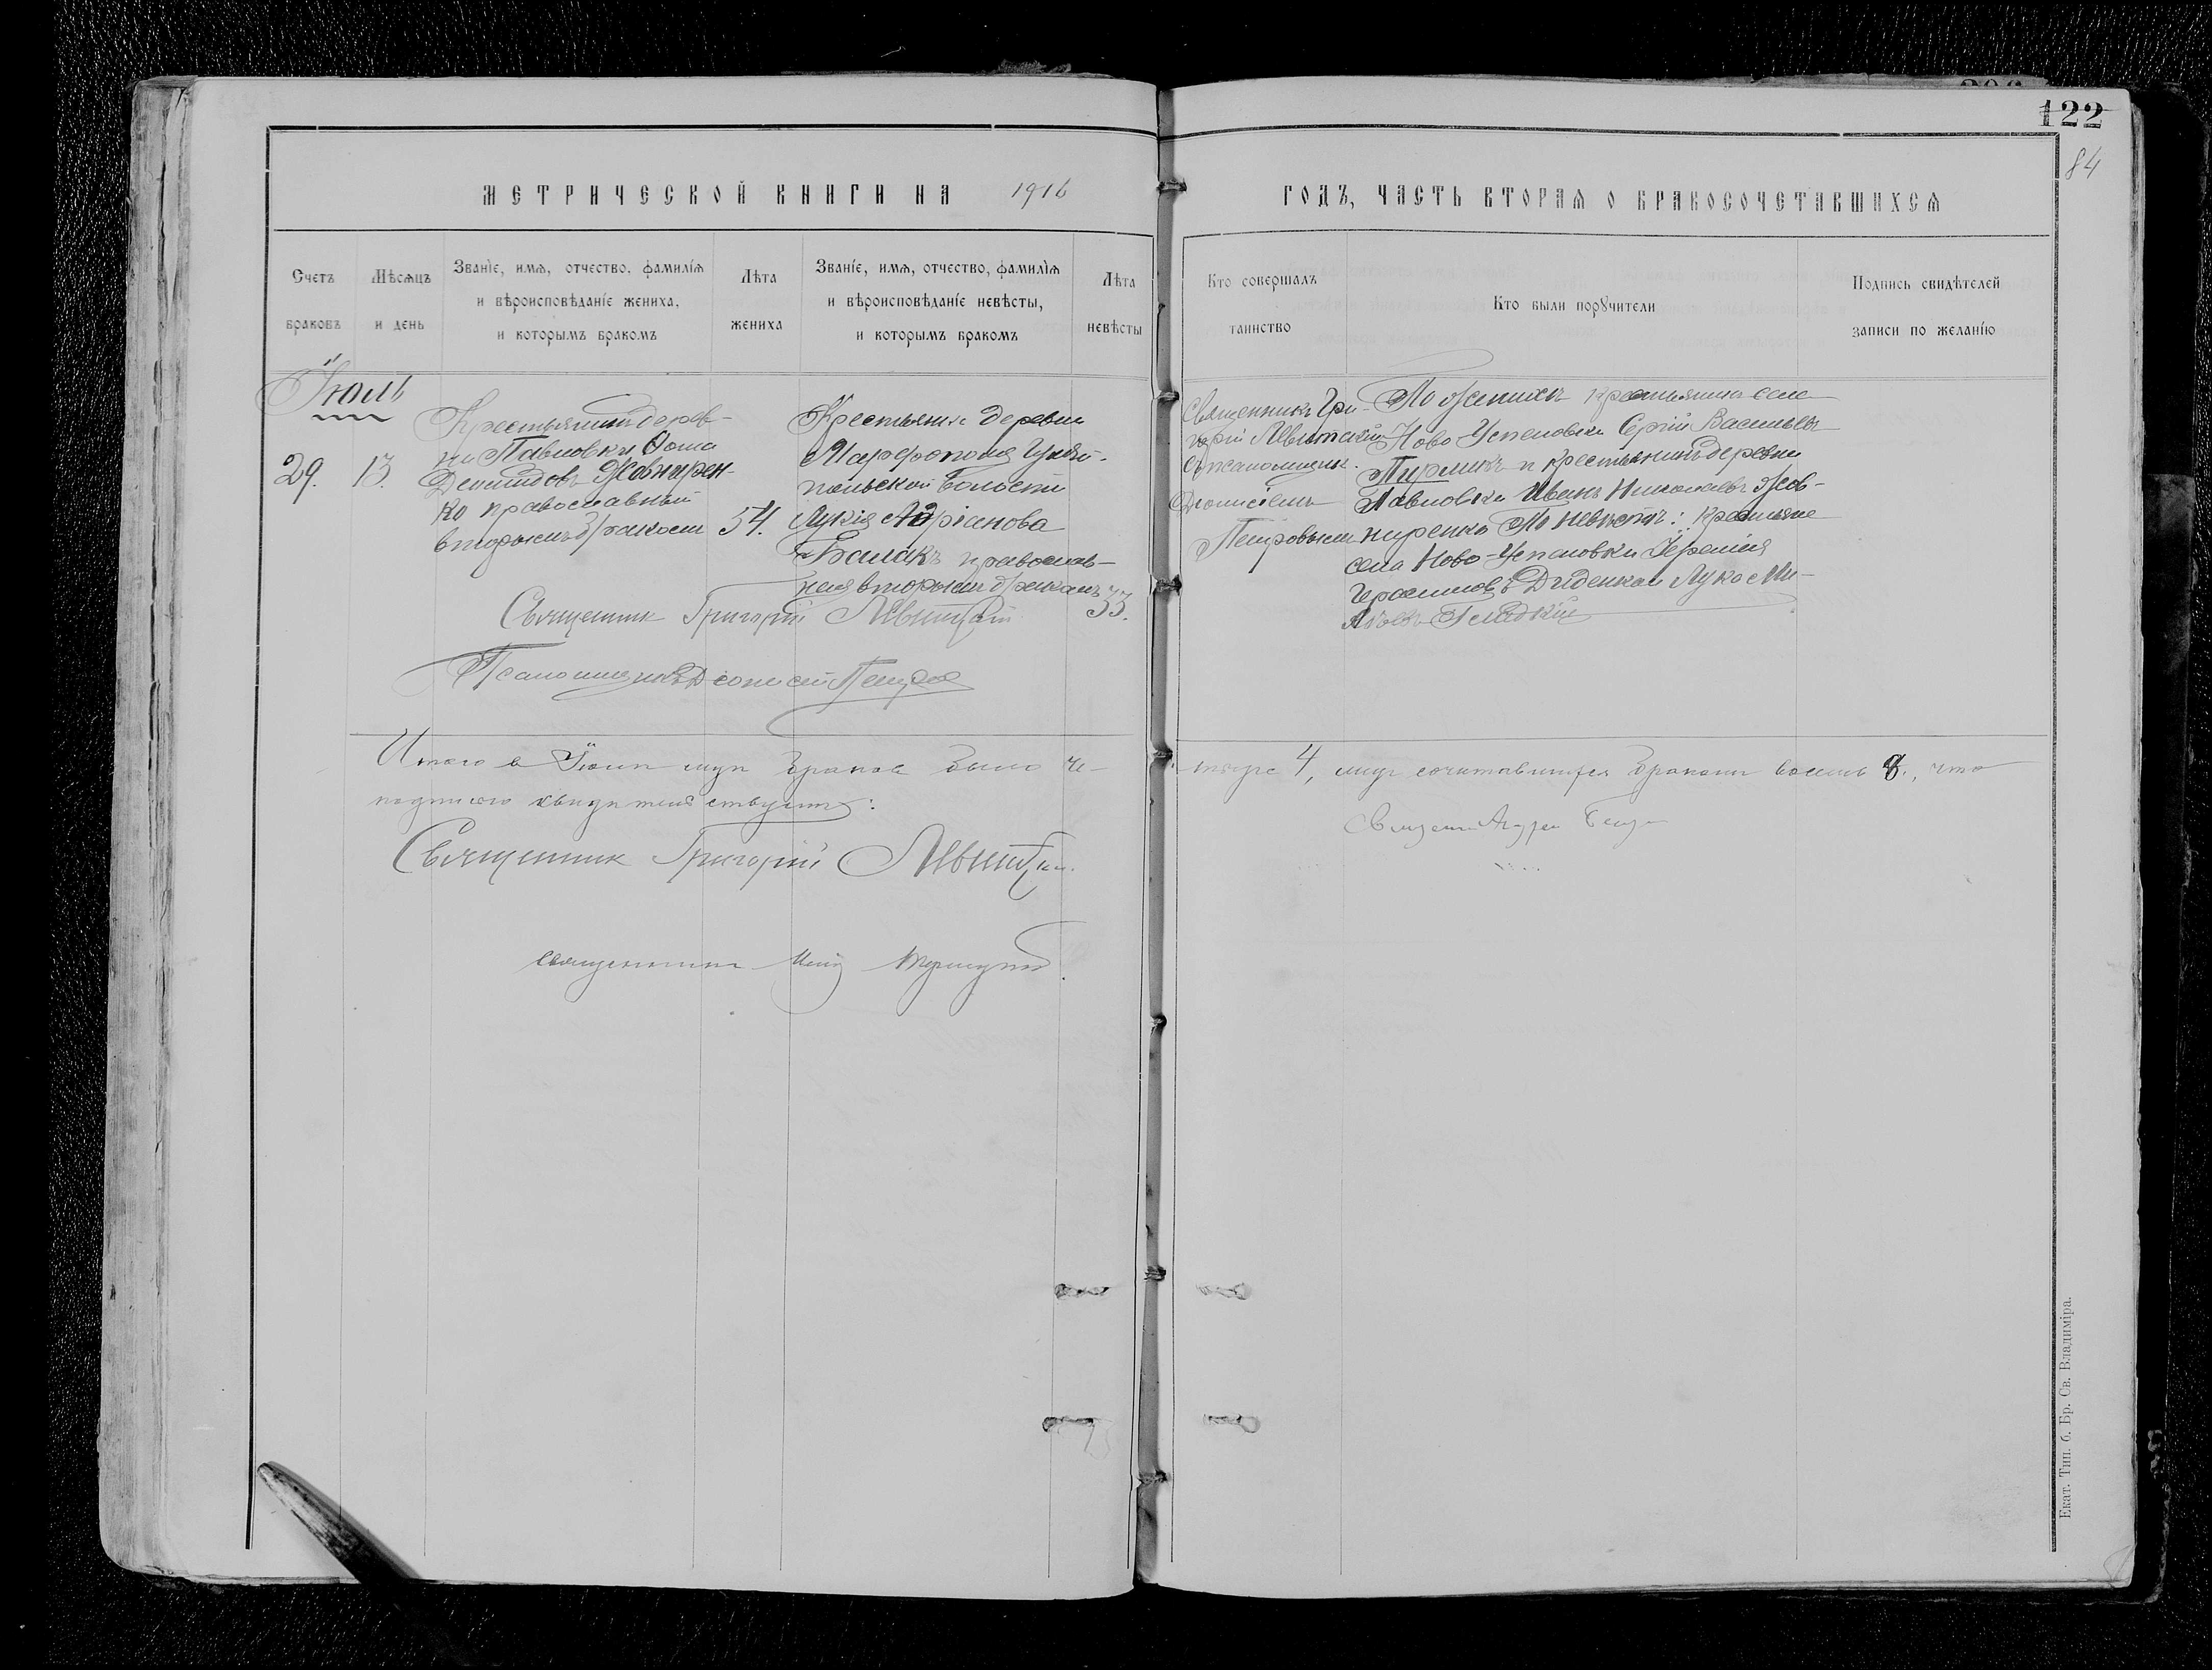 122
84
МЕТРИЧЕСКОЙ КНИГИ НА 1916
ГОДЪ, ЧАСТЬ ВТОРАЯ О БРАКОСОЧЕТАВШИХСЯ
Счетъ браковъ
Мѣсяцъ и день
Званіе, имя, отчество, фамилія
и вѣроисповѣданіе жениха,
и которымъ бракомъ
Лѣта жениха
Званіе, имя, отчество, фамилія
и вѣроисповѣданіе невѣсты,
и которымъ бракомъ
Лѣта невѣсты
Кто совершалъ
таинство
Кто были порꙋчители
Подпись свидѣтелей
записи по желанію
Іюль
29.
13.
Крестьянинъ дерев-
ни Павловки Ѳома
Демидовъ Жовнирен-
ко православный
вторымъ бракомъ
54.
Крестьянка деревни
Марфополя Гуляй-
польской волости
Лукія Адріанова
Балакъ православ-
ная вторымъ бракомъ
33.
Священникъ Гри-
горій Левитскій
съ псаломщик.
Діонисіемъ
Петровымъ
По женихѣ: крестьянинъ села
Ново Успеновки Сергій Васильевъ
Пирликъ и крестьянинъ деревни
Павловки Иванъ Николаевъ Жов-
ниренко По невѣстѣ: крестьяне
села Ново-Успеновки Іеремія
Герасимовъ Диденко и Лука
Гладкій
Священник Григорій Левитскій
Псаломщикъ Діонисій Петров
Итого в Іюлѣ мцѣ браков было че-
тыре 4, лицъ сочитавшихся браком восемь 8., что
подписью свидѣтельствуемъ:
Священник Григорій Левитскій.
Священникъ Андрей
священник
Екат. Тип. б. Бр. Св. Владиміра.